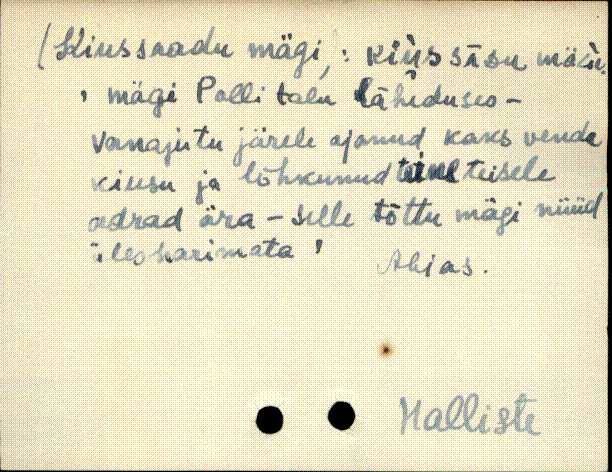 (Kiussaadu mägi, : kiùssāsu mäǵi,
' mägi Polli talu läheduses –
Vanajutu järele ajanud kaks venda
kiusu ja lõhkunud teine teisele
adrad ära – selle tõttu mägi nüüd
ülesharimata '
Abjas.
Halliste